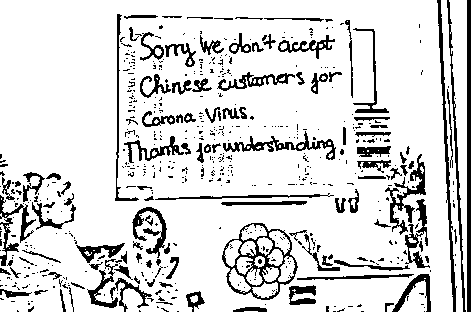 Sorry we don't accept
Chinese customers for
Corona Virus.
Thanks for understanding!